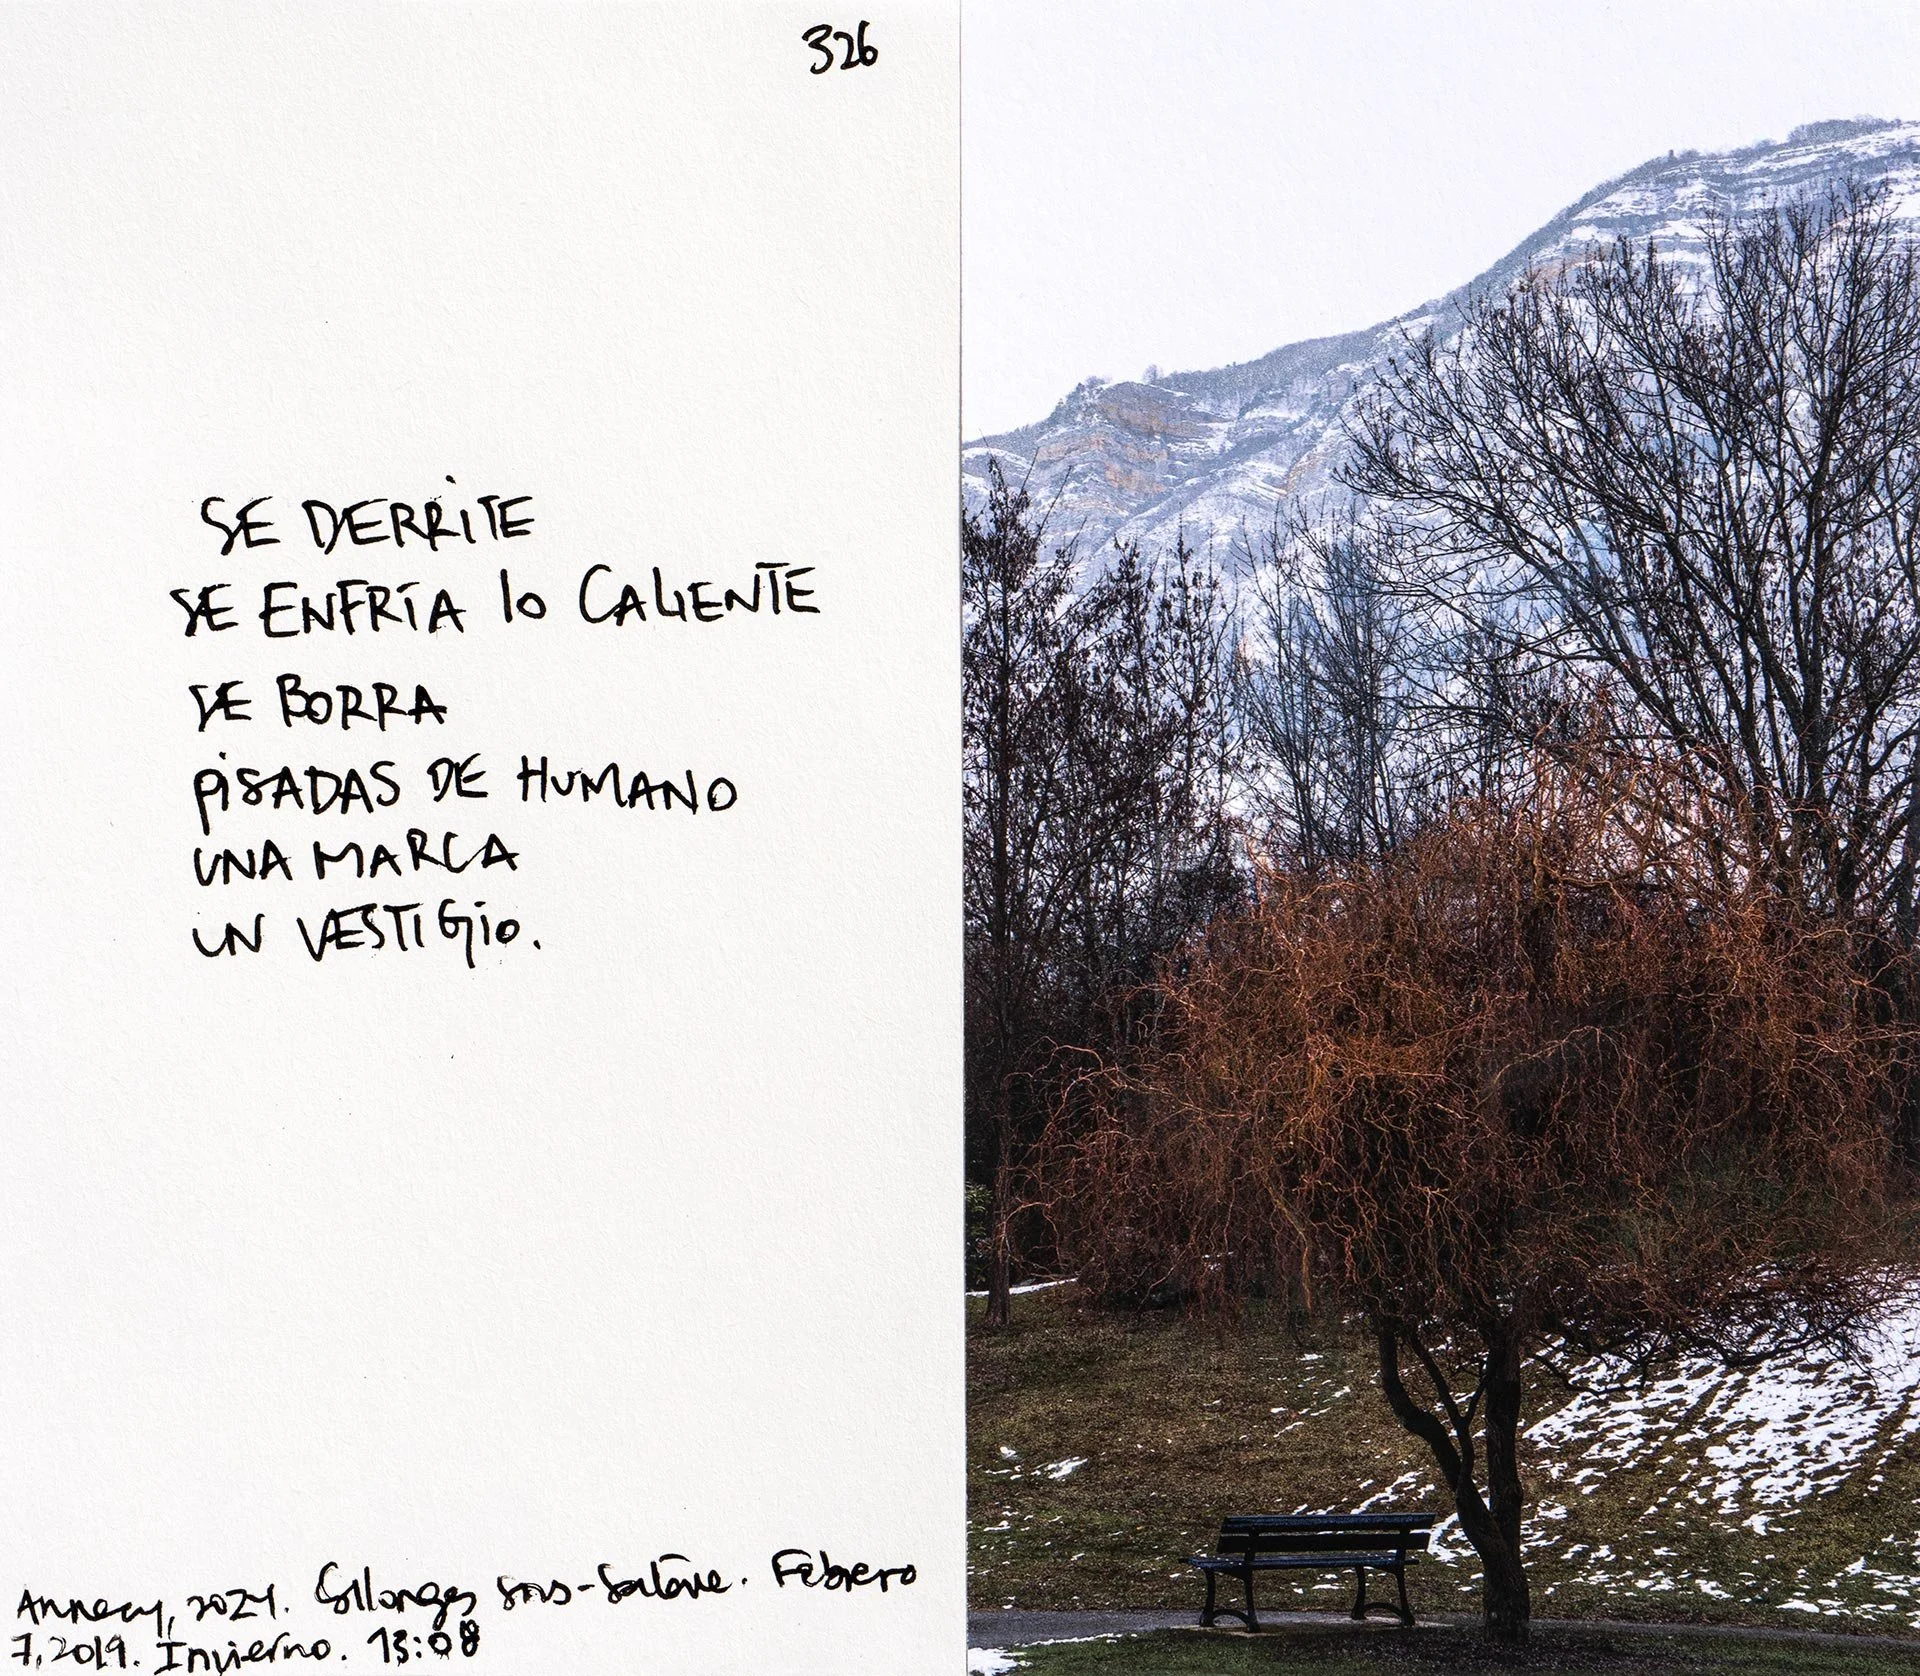 326
SE DERRITE
SE ENFRÍA lo CALIENTE
SE BORRA
PISADAS DE HUMANO
UNA MARCA
UN VESTIGIO.
Annecy, 2024. Collonges sous-Salève. Febrero
7, 2019. Invierno. 13:08